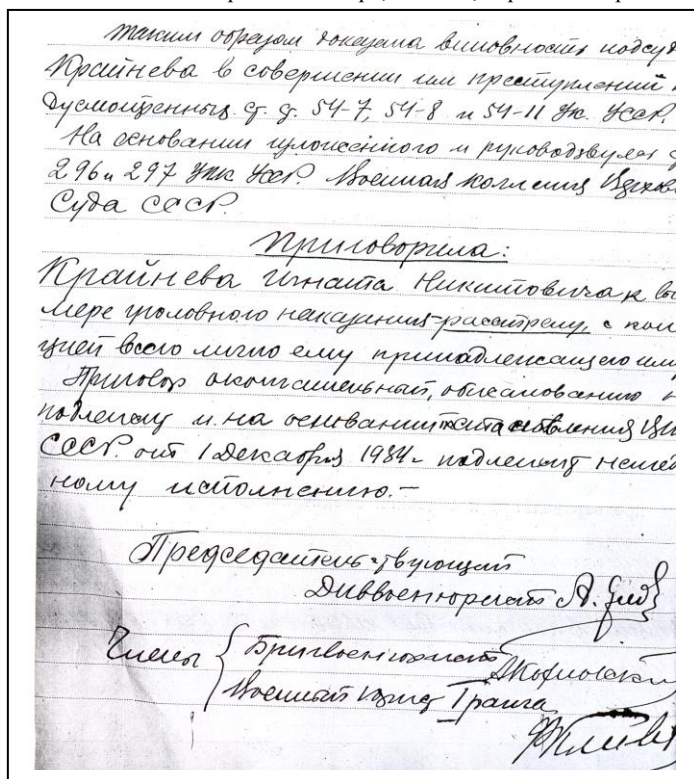 таким образом доказана виновность подсуд
Крайнева в совершении им преступлений
дусмотренных ст. ст. 54-7, 54-8 и 54-11 УК. УССР.
На основании изложенного и руководствуясь
296 и 297 УПК УССР. Военная коллегия Верхов
Суда СССР.
Приговорила:
Крайнева Игната Никитовича к вы
мере уголовного наказания-расстрелу, с кон
цией всего лично ему принадлежащего иму
Приговор окончательный, обжалованию н
подлежит и на основании постановления ЦИК
СССР. от 1 Декабря 1934 г. подлежит немед
ному исполнению.-
Председательствующий
Диввоенюрист А.
Члены { Бригвоенюрист
Военный юрист I ранга